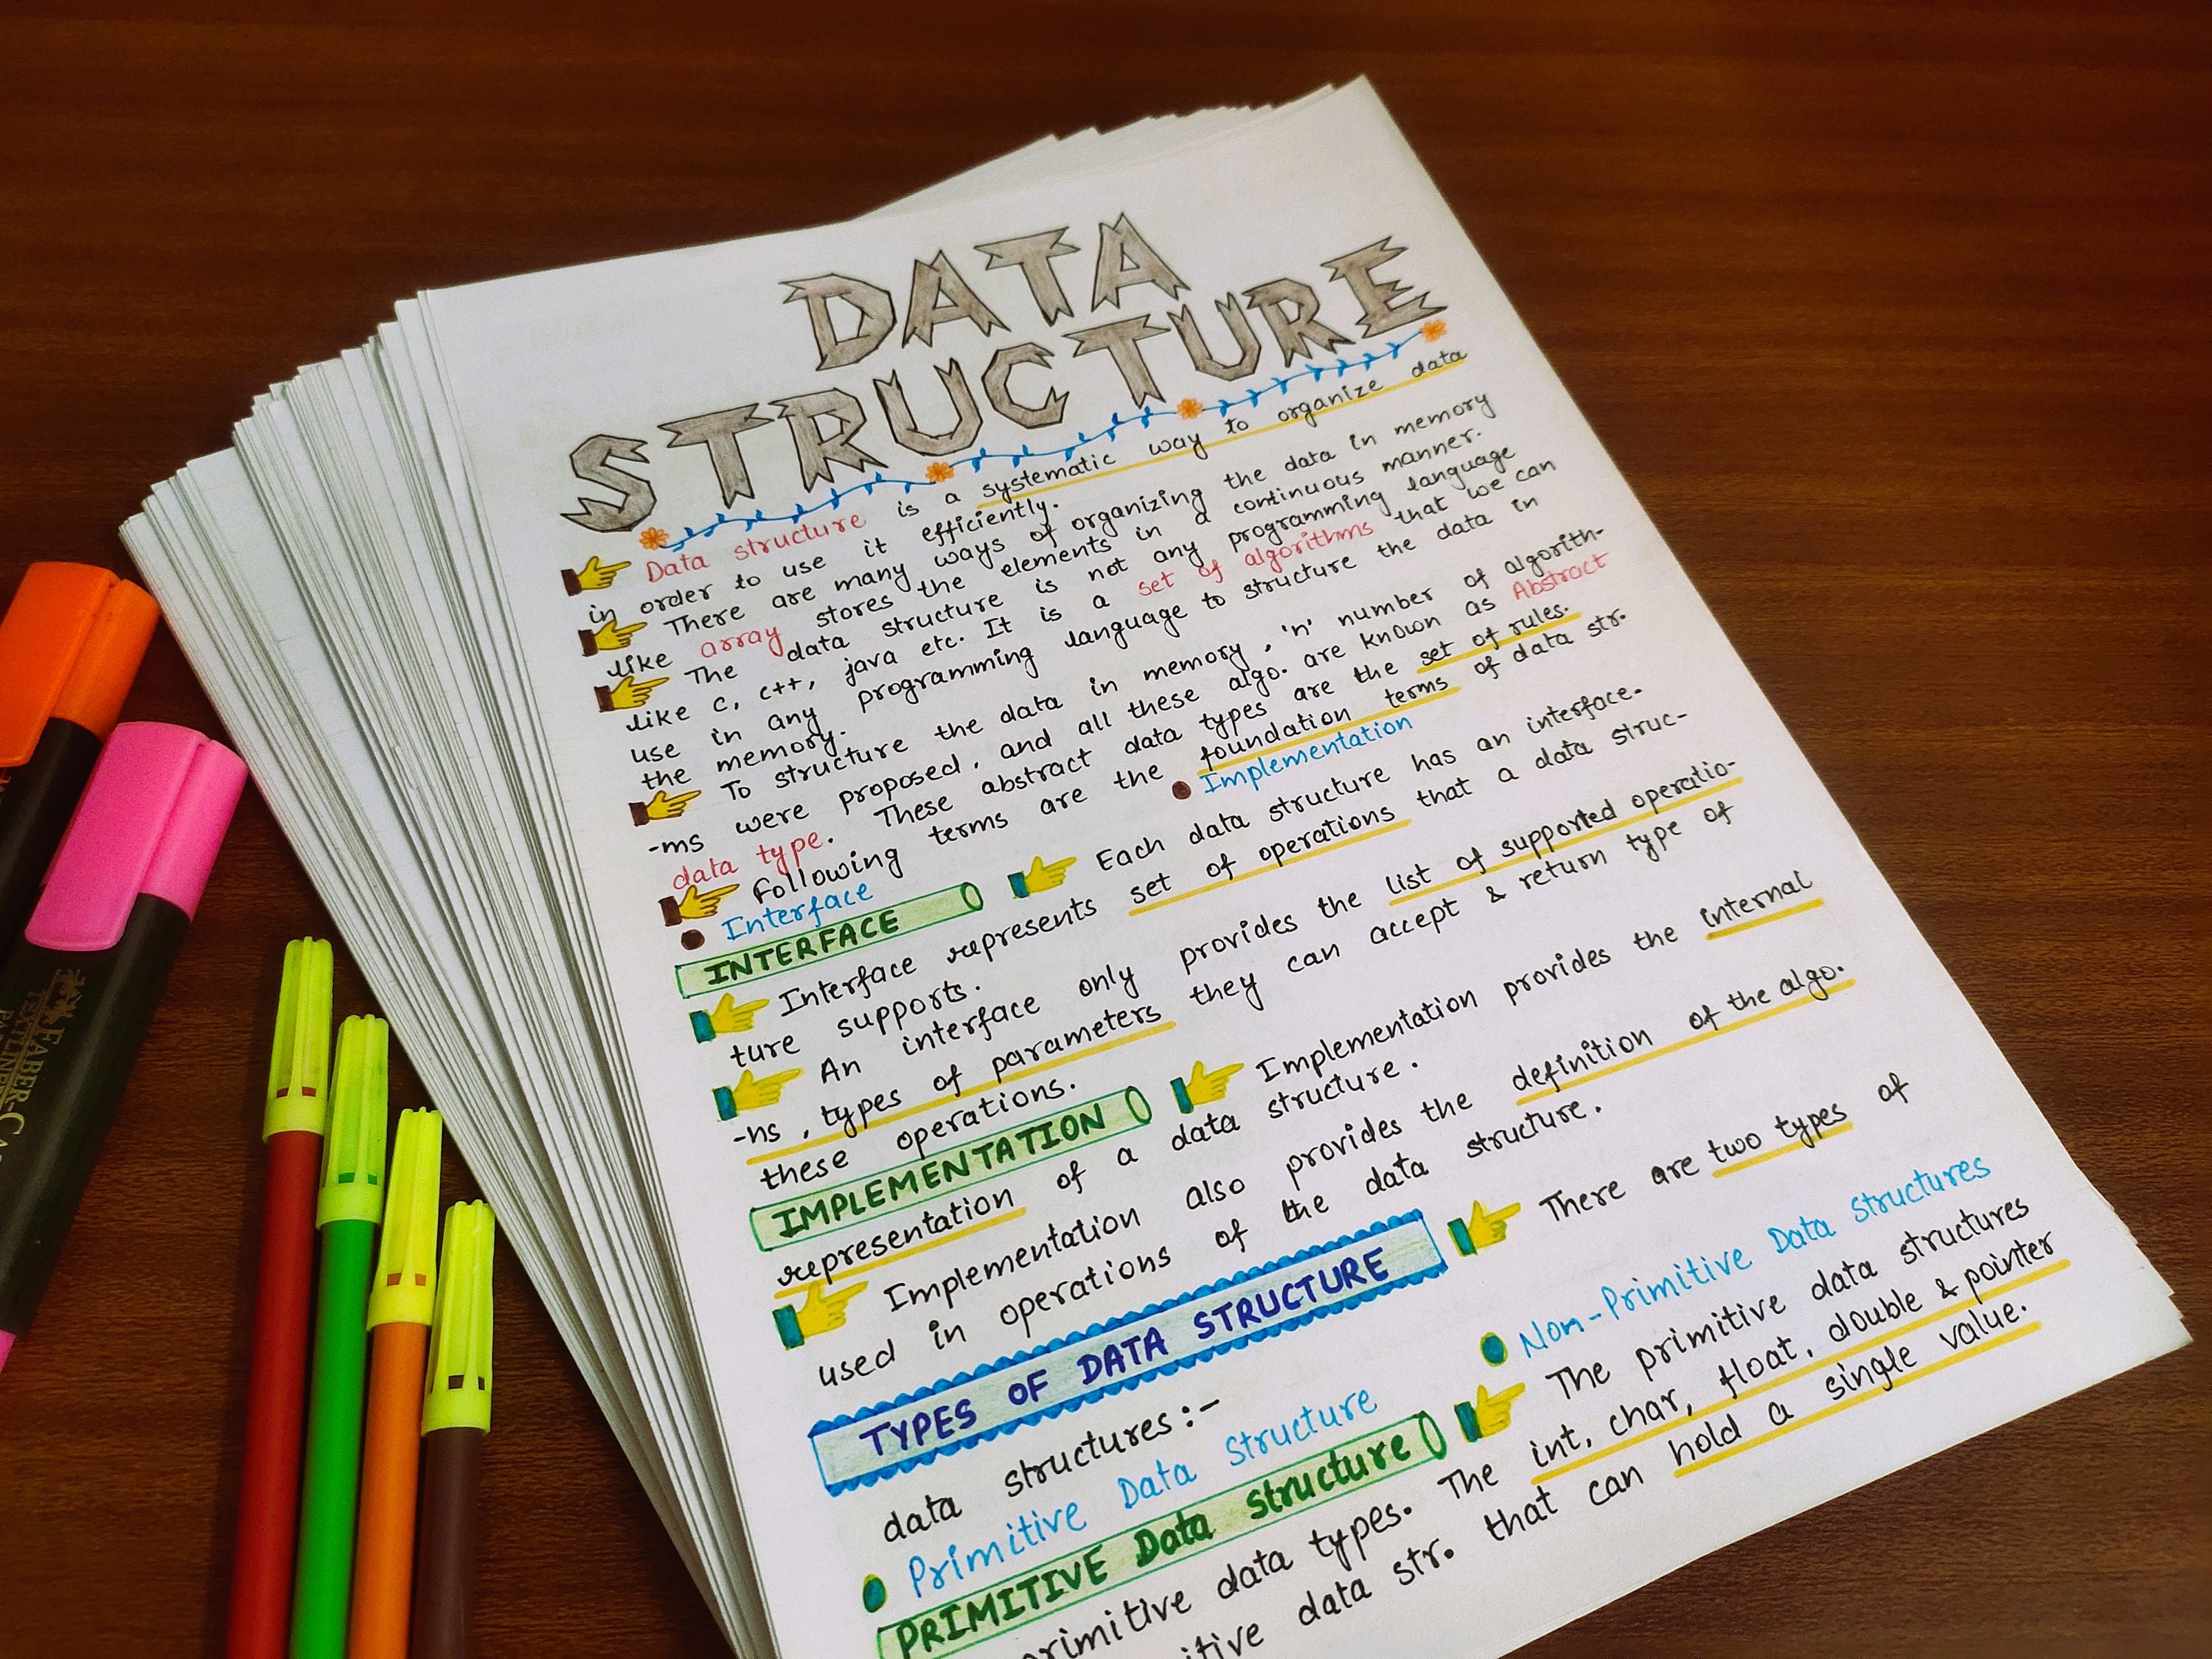 DATA
STRUCTURE
Data structure is a systematic way to organize data
in order to use it efficiently.
There are many ways of organizing the data in memory
like array stores the elements in a continuous manner.
The data structure is not any programming language
like c, c++, java etc. It is a set of algorithms that we can
use in any programming language to structure the data in
the memory.
To structure the data in memory, 'n' number of algorith-
-ms were proposed, and all these algo. are known as Abstract
data type. These abstract data types are the set of rules.
Following terms are the foundation terms of data str.
Interface Implementation
INTERFACE Each data structure has an interface.
Interface represents set of operations that a data struc-
ture supports.
An interface only provides the list of supported operatio-
-ns, types of parameters they can accept & return type of
these operations.
IMPLEMENTATION Implementation provides the internal
representation of a data structure.
Implementation also provides the definition of the algo.
used in operations of the data structure.
TYPES OF DATA STRUCTURE There are two types of
data structures :-
Primitive Data Structure Non-Primitive Data Structures
PRIMITIVE Data Structure The primitive data structures
primitive data types. The int, char, float, double & pointer
data str. that can hold a single value.
FABER-CA
TEXTLINER